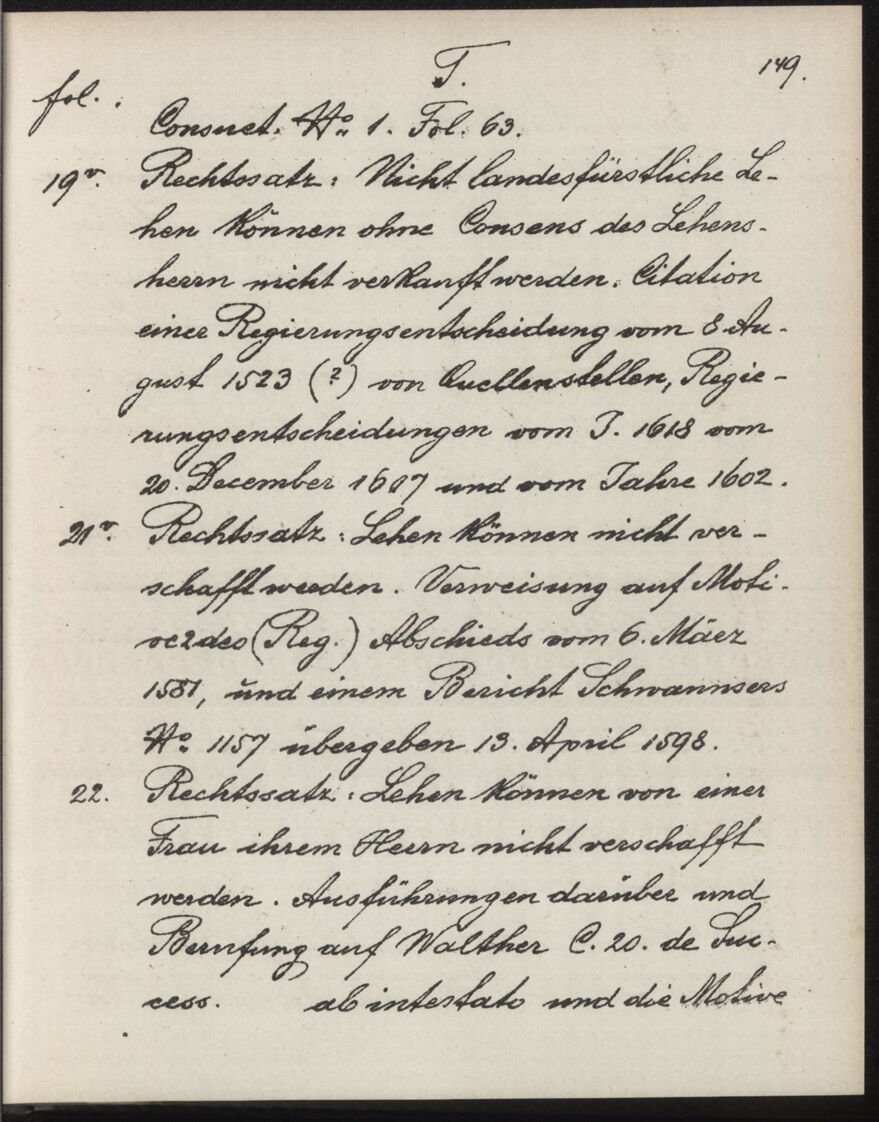 T.
149.
fol.
Consuet. No 1. Fol. 63.
19v. Rechtssatz: Nicht landesfürstliche Le-
hen können ohne Consens des Lehens-
herrn nicht verkauft werden. Citation
einer Regierungsentscheidung vom 8 Au-
gust 1523 (?) von Quellenstellen, Regie-
rungsentscheidungen vom J. 1618 vom
20. December 1607 und vom Jahre 1602.
21v. Rechtssatz: Lehen können nicht ver-
schafft werden. Verweisung auf Moti-
des (Reg.) Abschieds vom 6. März
1581, und einem Bericht Schwannsers
No 1157 übergeben 13. April 1598.
22. Rechtssatz: Lehen können von einer
Frau ihrem Herrn nicht verschafft
werden. Ausführungen darüber und
Berufung auf Walther C. 20. de Suc-
cess. ab intestato und die Motive